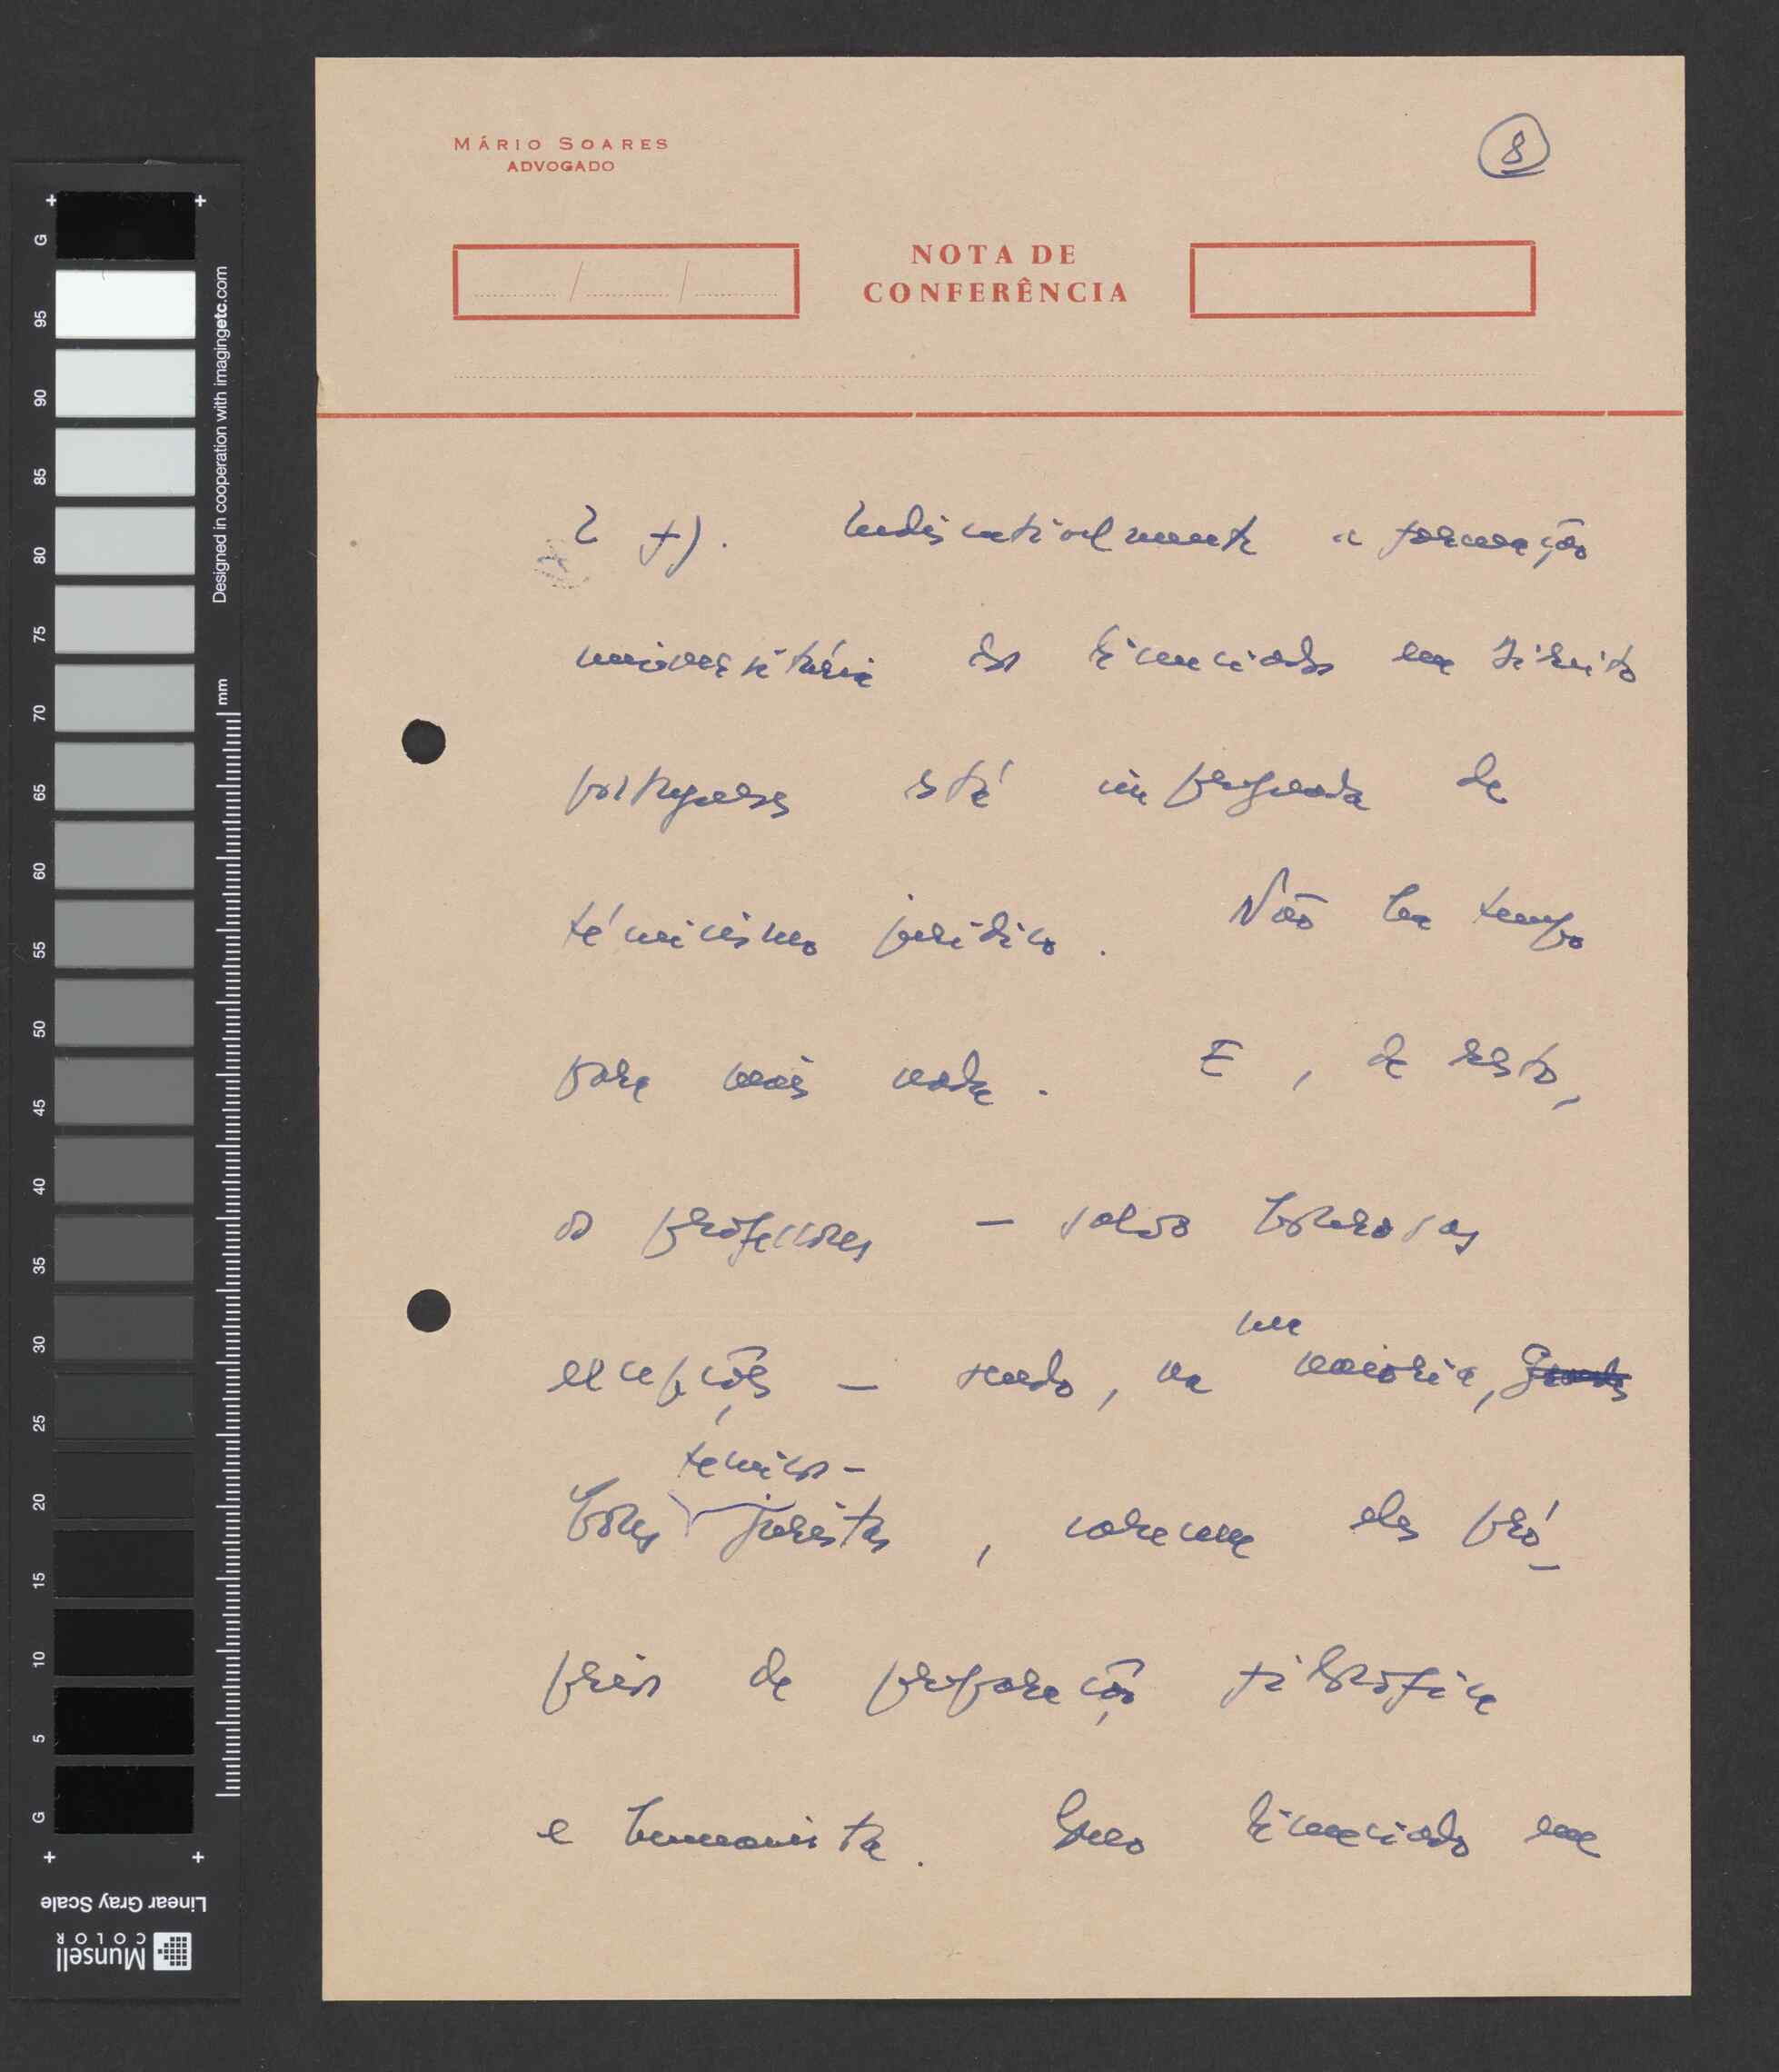 MÁRIO SOARES
ADVOGADO
8
NOTA DE
CONFERÊNCIA
2 f). Indiscutivelmente a formação
universitária dos licenciados em Direito
portugueses está impregnada de
tecnicismo jurídico. Não há tempo
para mais nada. E, de resto,
os professores — salvo honrosas
excepções — sendo, na maioria,
técnicos-
bons juristas, carecem eles pró-
prios de preparação filosófica
e humanista. Um licenciado em
G 95 90 85 80 75 70 65 60 55 50 45 40 35 30 25 20 15 10 5 G
mm
Designed in cooperation with imagingetc.com
Linear Gray Scale
Munsell
COLOR